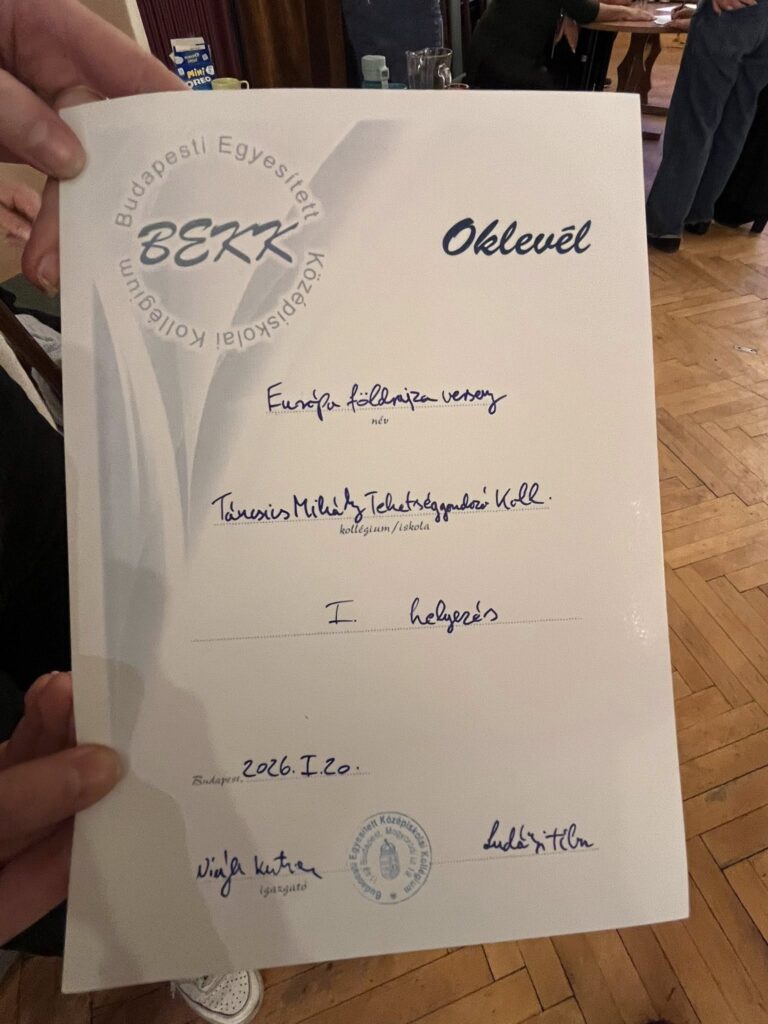 mini
OREO
Budapesti Egyesített Középiskolai Kollégium
BEKK
Oklevél
Európa földrajza verseny
név
Táncsics Mihály Tehetséggondozó Koll.
kollégium/iskola
I. helyezés
Budapest, 2026. I. 20.
igazgató
Budapesti Egyesített Középiskolai Kollégium